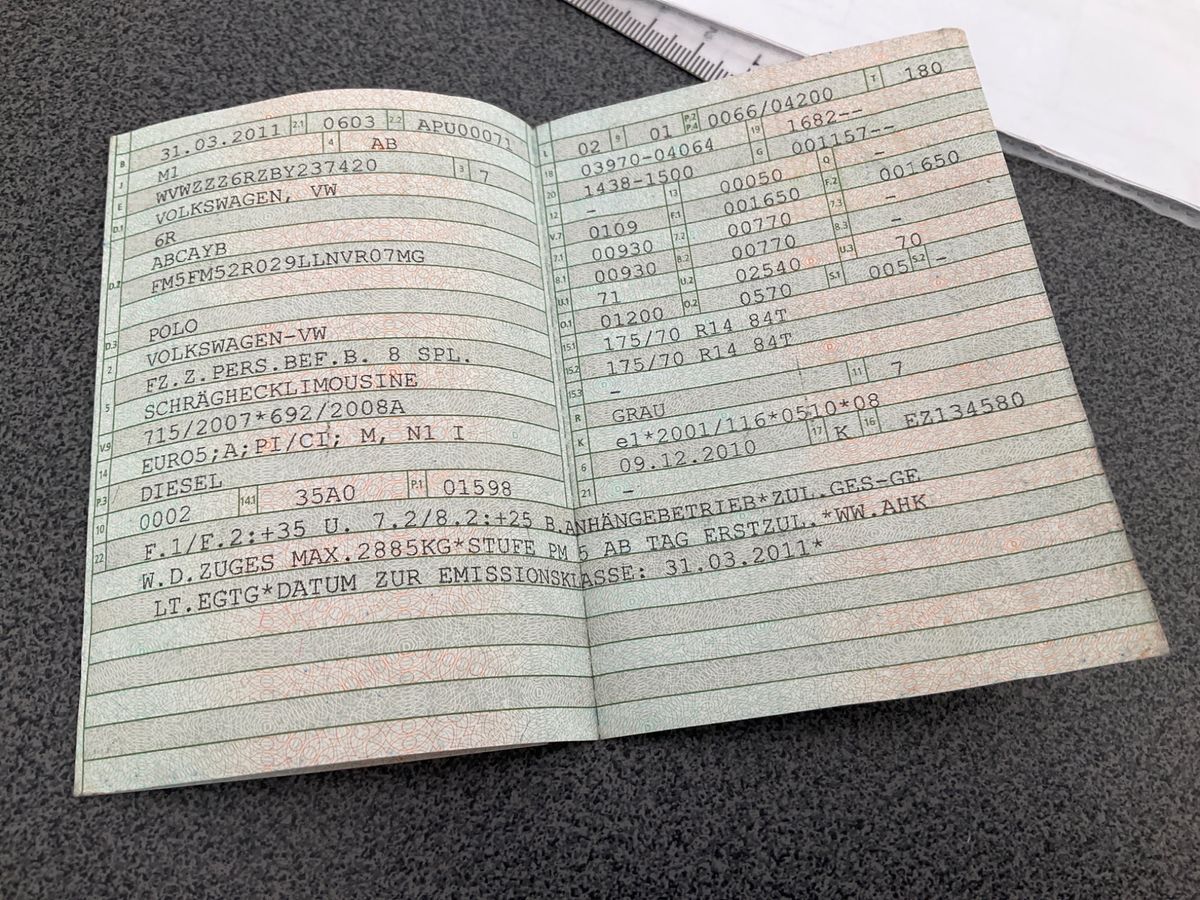 B 31.03.2011 2.1 0603 2.2 APU00071
J M1 4 AB
E WVWZZZ6RZBY237420 3 7
D.1 VOLKSWAGEN, VW
6R
D.2 ABCAYB
FM5FM52R029LLNVR07MG
D.3 POLO
2 VOLKSWAGEN-VW
5 FZ.Z.PERS.BEF.B. 8 SPL.
SCHRÄGHECKLIMOUSINE
V.9 715/2007*692/2008A
14 EURO5;A;PI/CI; M, N1 I
P.3 DIESEL
10 0002 14.1 35A0 P.1 01598
22 F.1/F.2:+35 U. 7.2/8.2:+25 B.ANHÄNGEBETRIEB*ZUL.GES-GE
W.D.ZUGES MAX.2885KG*STUFE PM 5 AB TAG ERSTZUL.*WW.AHK
LT.EGTG*DATUM ZUR EMISSIONSKLASSE: 31.03.2011*
L 02 9 01 P.2 P.4 0066/04200 T 180
18 03970-04064 19 1682--
20 1438-1500 G 001157--
12 - 13 00050 Q -
V.7 0109 F.1 001650 F.2 001650
7.1 00930 7.2 00770 7.3 -
8.1 00930 8.2 00770 8.3 -
U.1 71 U.2 02540 U.3 70
O.1 01200 O.2 0570 S.1 005 S.2 -
15.1 175/70 R14 84T
15.2 175/70 R14 84T
15.3 -
R GRAU 11 7
K e1*2001/116*0510*08
6 09.12.2010 17 K 16 EZ134580
21 -